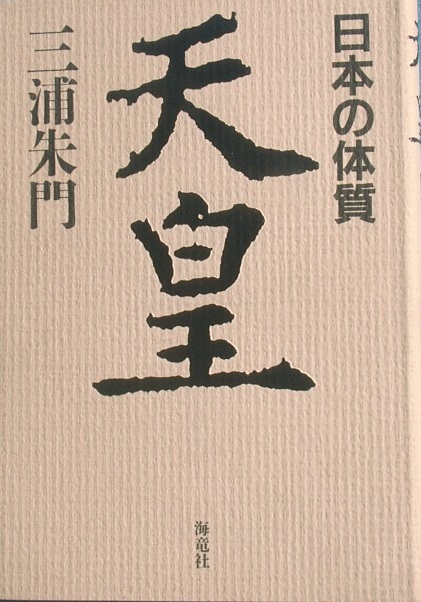 日本の体質
天皇
三浦朱門
海竜社